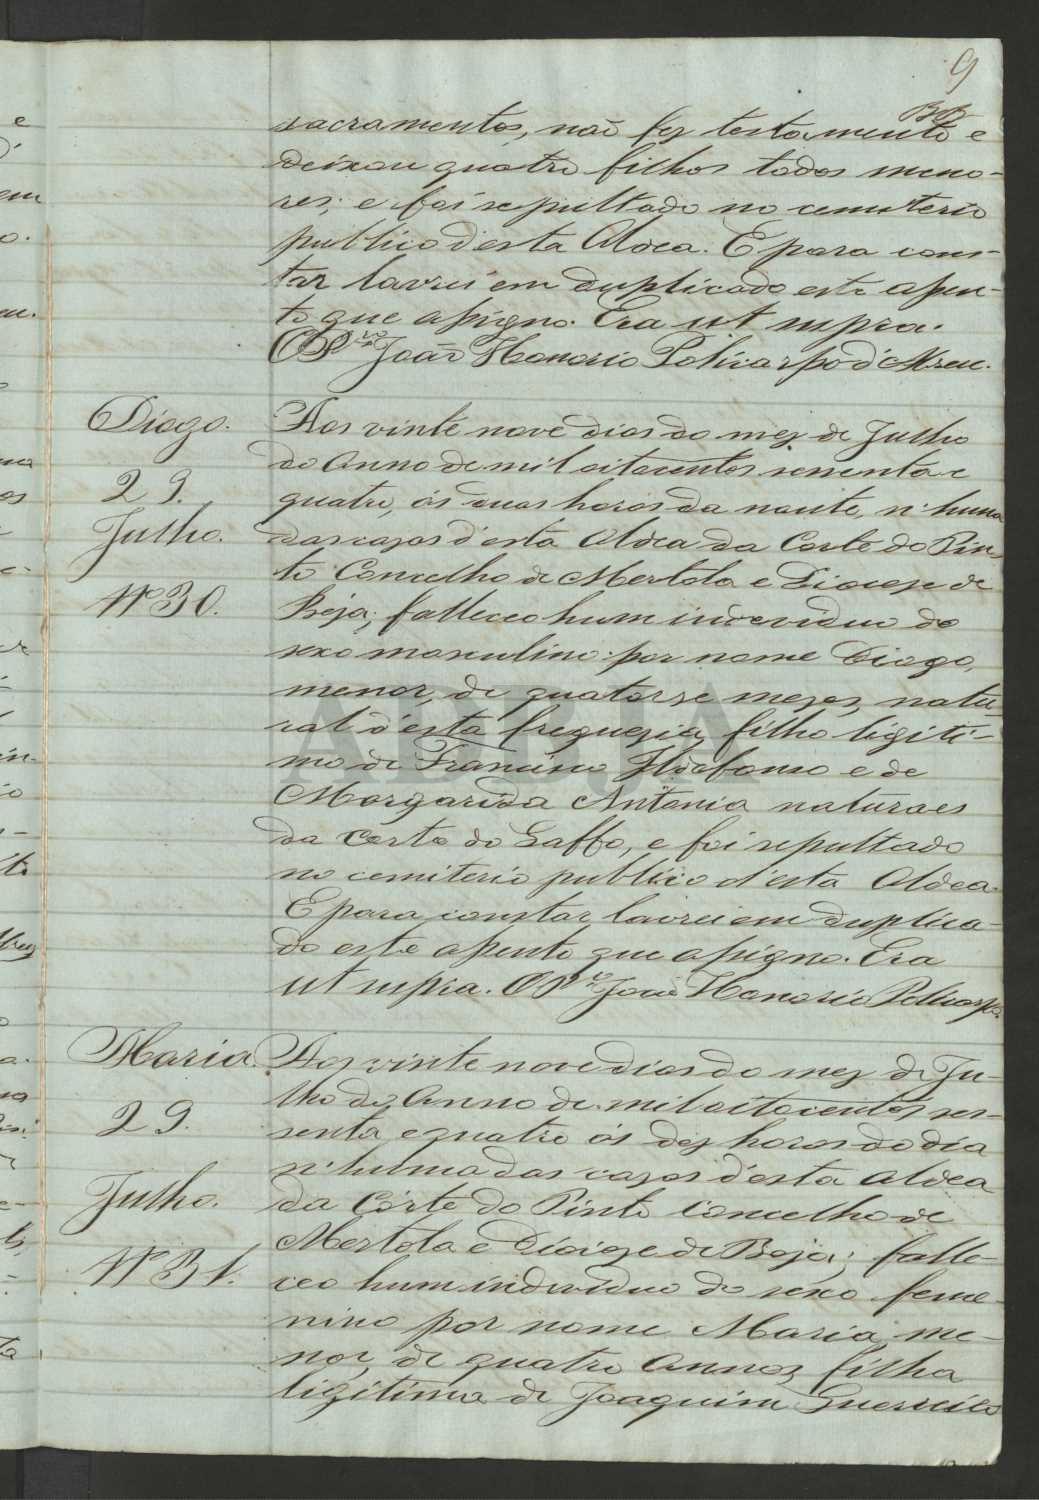 9
sacramentos, não fez testamento e
deixou quatro filhos todos meno-
res; e foi sepultado no cemiterio
publico d'esta Aldea. E para cons-
tar lavrei em duplicado este assen-
to que assigno. Era ut supra.
O P.e João Honorio Policarpo d'Abreu.
Diogo.
29.
Julho.
Nº 30.
Aos vinte nove dias do mez de Julho
do Anno de mil oitocentos sessenta e
quatro, ás duas horas da noute, n'huma
das cazas d'esta Aldea da Corte do Pin-
to Concelho de Mertola e Diocese de
Beja; falleceo hum individuo do
sexo masculino por nome Diogo,
menor, de quatorze mezes, natu-
ral d'esta freguezia, filho ligiti-
mo de Francisco Ildefonso e de
Margarida Antonia naturaes
da Corte do Gaffo, e foi sepultado
no cemiterio publico d'esta Aldea.
E para constar lavrei em duplica-
do este assento que assigno. Era
ut supra. O P.e João Honorio Policarpo.
Maria.
29.
Julho.
Nº 31.
Aos vinte nove dias do mez de Ju-
lho do Anno de mil oitocentos ses-
senta e quatro ás dez horas do dia
n'huma das cazas d'esta Aldea
da Côrte do Pinto Concelho de
Mertola e Dioceze de Beja; falle-
ceo hum individuo do sexo feme-
nino por nome Maria, me-
nor, de quatro Annos, filha
ligitima de Joaquim Guerreiro